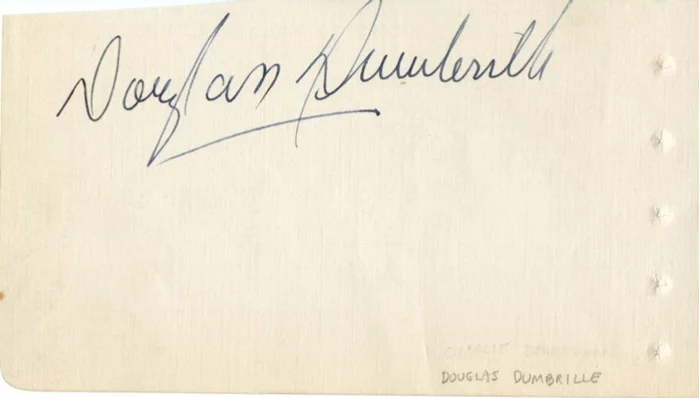 Douglass Dumbrille
DOUGLAS DUMBRILLE